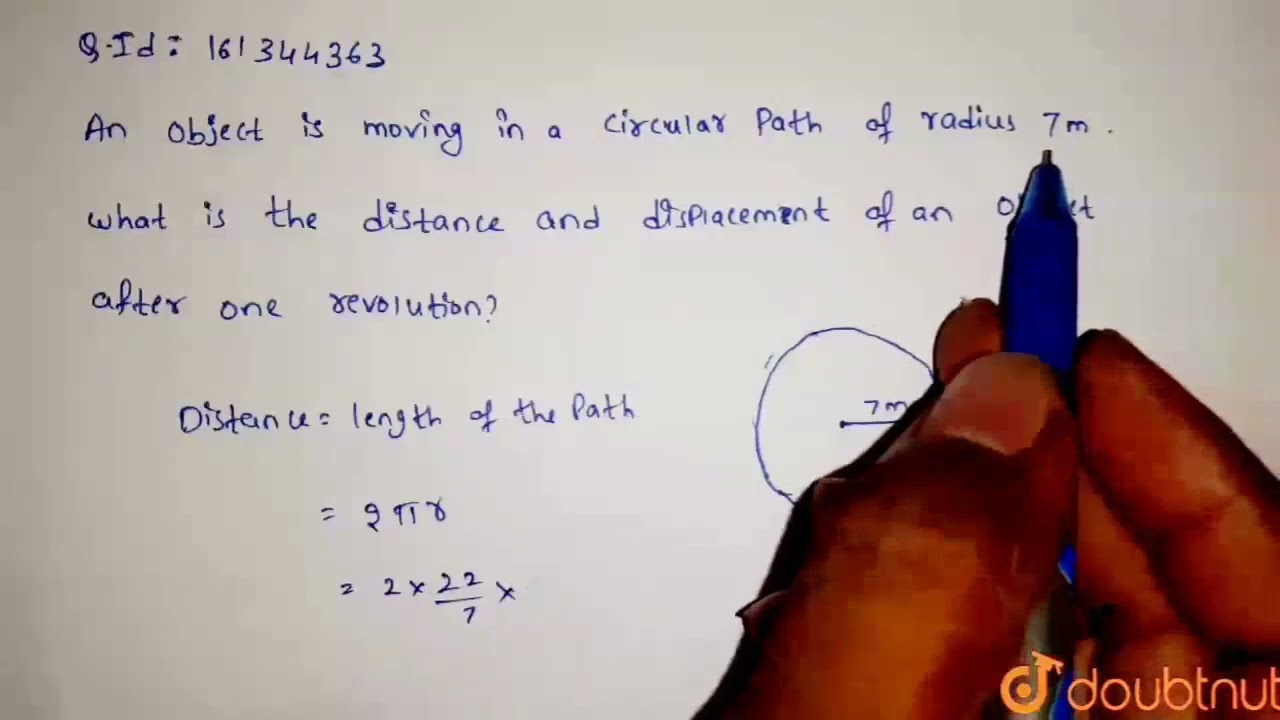 Q.Id: 161344363
An object is moving in a circular path of radius 7m.
what is the distance and displacement of an
after one revolution?
7m
Distance = length of the path
= 2πr
= 2 × 22/7 ×
doubtnut